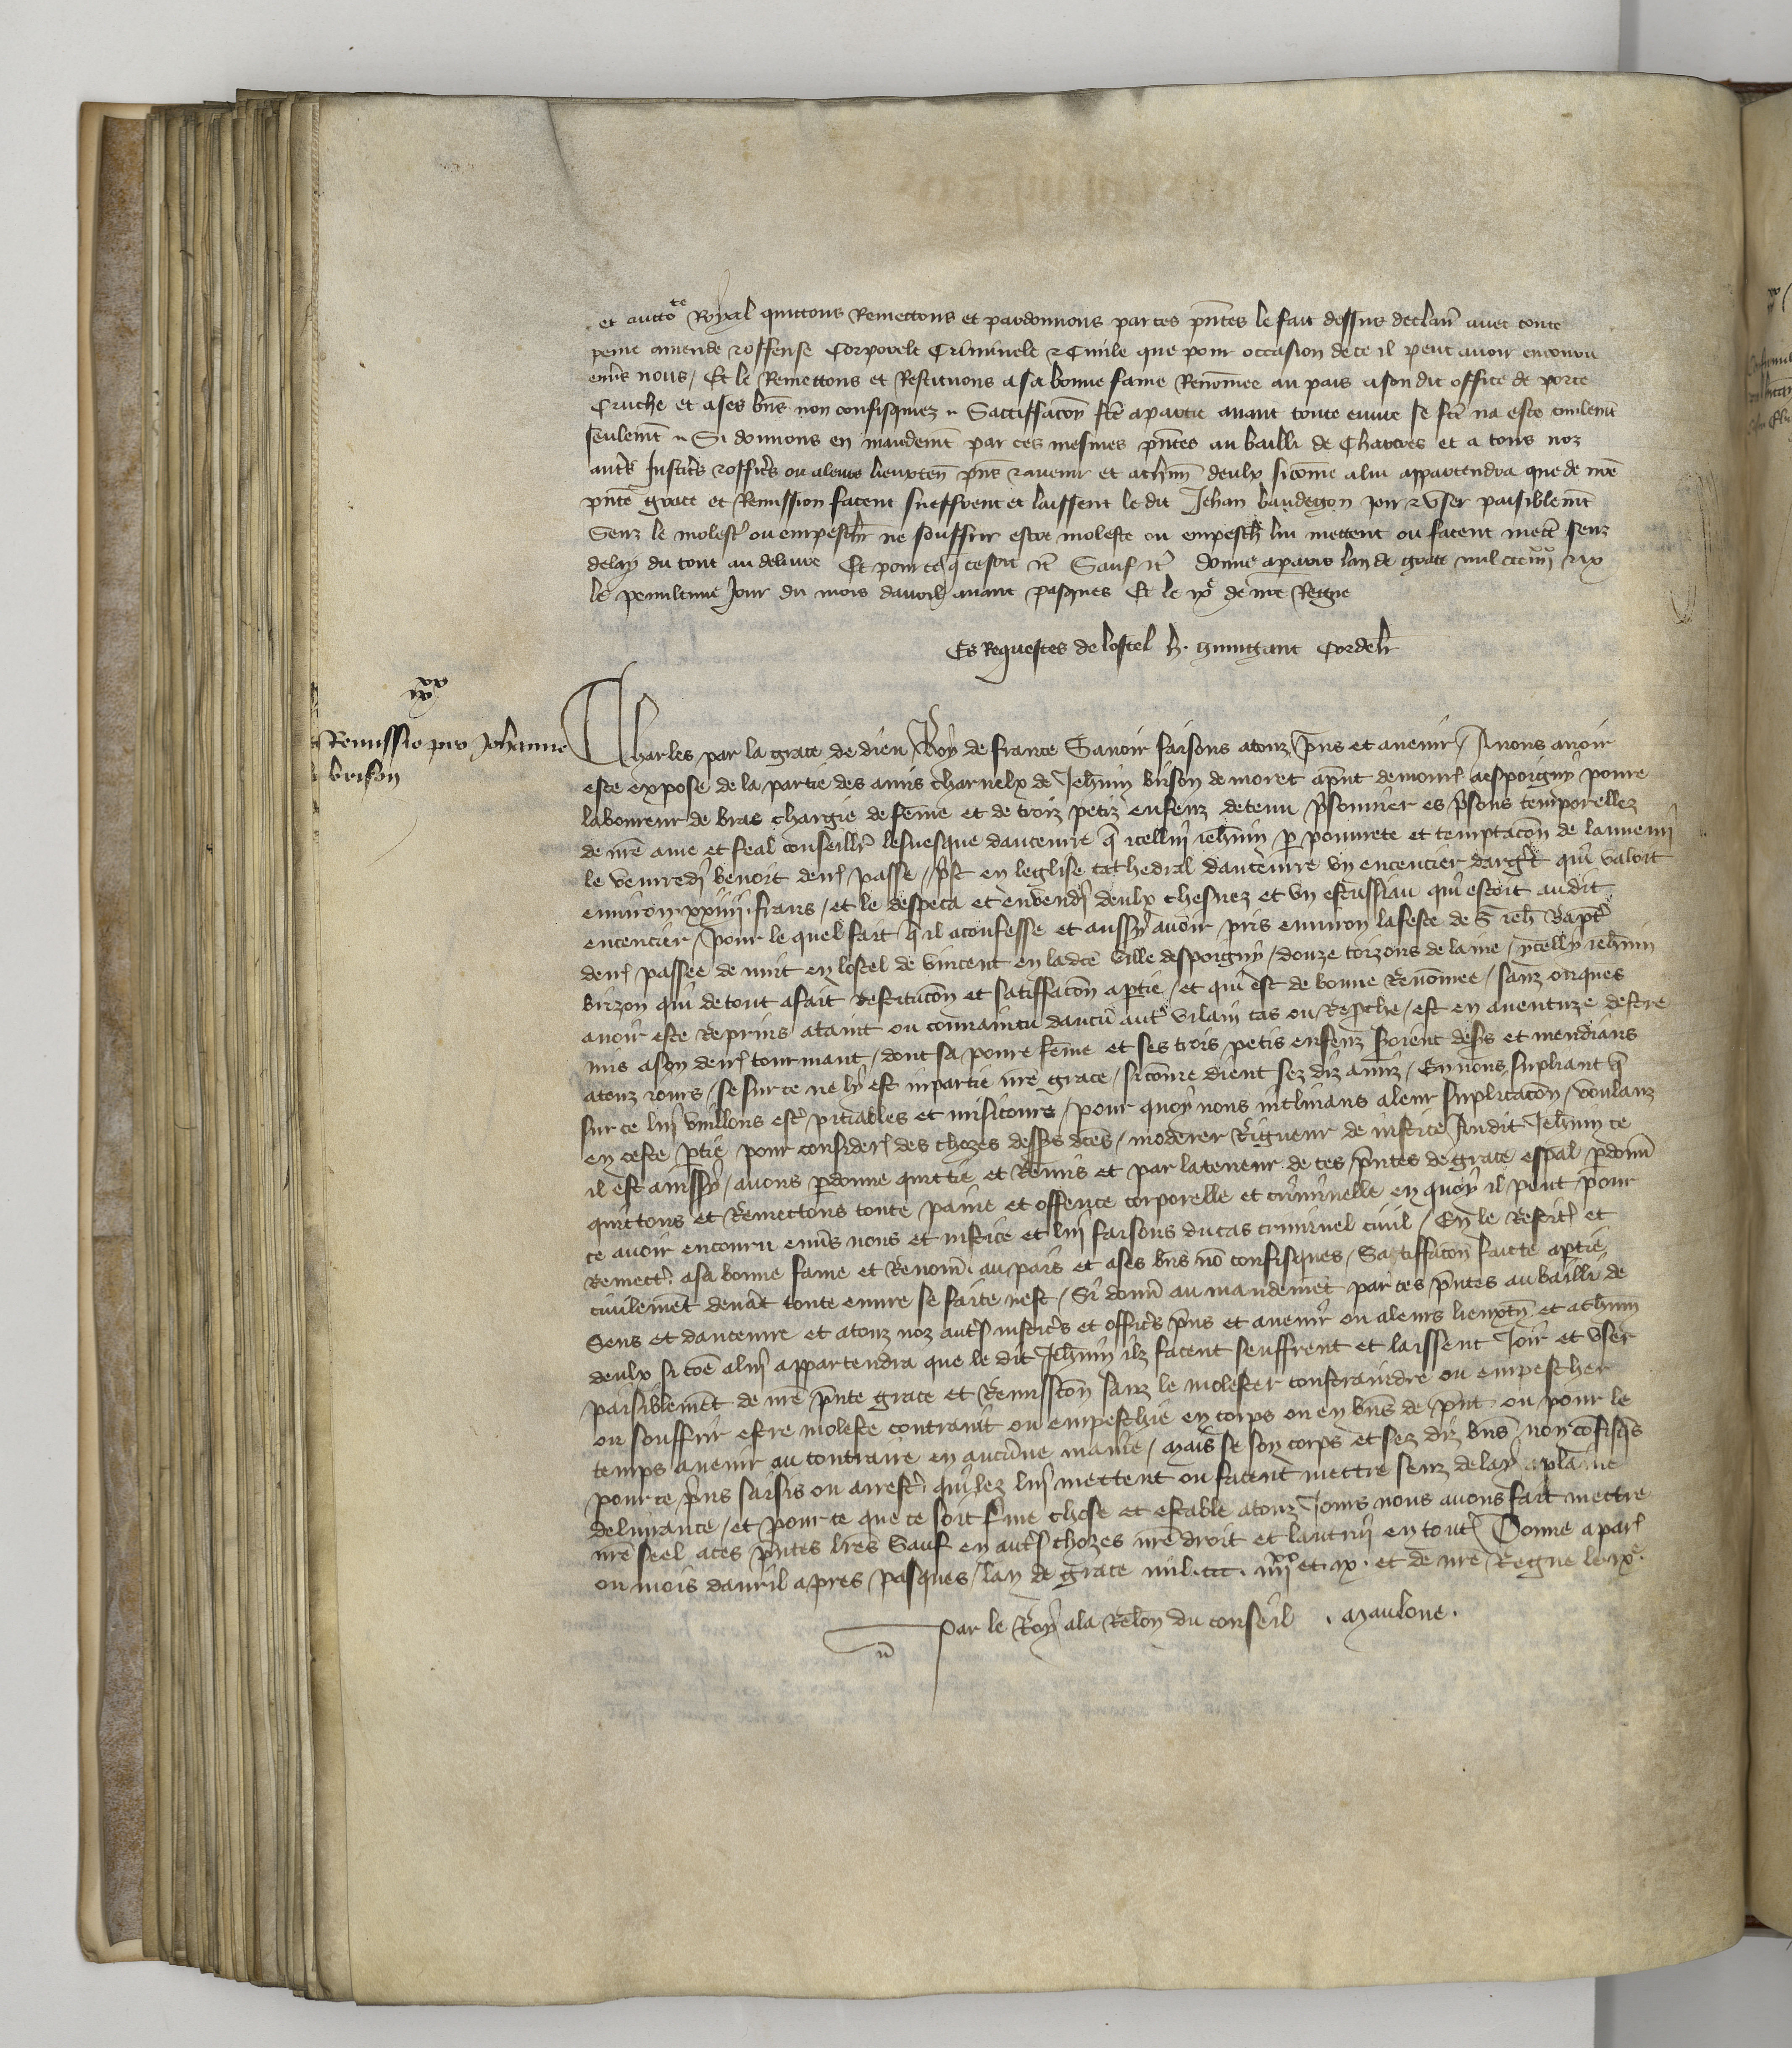 et auctote Royal quittons Remettons et pardonnons par ces pntes le fait dessus declaire avec toute
peine amende & offense Corporele Criminele & Civile que pour occasion de ce il peut avoir encouru
envers nous / Et le Remettons et Restituons a sa bonne fame Renommee au pais a son dit office de porte
Cruche et a ses bns non confisquez Sattiffacon fte a partie avant toute euvre se fte na este civilemt
seulemt Si donnons en mandemt par ces mesmes pntes au bailli de Chartres et a tous noz
autrs Justicrs & officrs ou a leurs lieuxten pns & avenir et a chun deulx si come a lui appartendra que de nre
pnte grace et Remission facent sueffrent et laissent le dit Jehan baudegon joir & user paisiblemt
Senz le molestr ou empeschr ne souffrir estre moleste ou empesch lui mettent ou facent mectr senz
delay du tout au delivre Et pour ce q ce soit etc Sauf etc donne a paris lan de grace mil ccc iiiixx & ix
le penultime Jour du mois davril avant pasques Et le ixe de nre Regne
Es Requestes de lostel h. guingant Cordelr
ixxx
Remissio pro Johanne
brison
Charles par la grace de dieu Roy de france Savoir faisons a touz pns et avenir / Nous avoir
este expose de la partie des amis charnelx de Jehnin brison de moret a pnt demour a espoigny povre
laboureur de bras chargie de feme et de troiz petiz enfenz detenu prsonnier es prsons temporellez
de nre ame et feal conseillr levesque daucerre q icelluy iehnin p povrete et temptacon de lannemi
le venredy benoit dernr passe / prst en leglise cathedral daucerre vn encencier dargent qui valoit
environ xxiiii. frans / et le despeca et en vendy deulx chesnez et vn escussiau qui estoit audit
encencier / pour le quel fait q il a confesse et aussy avoir pris environ la feste de S ieh bapte
dernr passee de nuit en lostel de vincent en ladce ville despoigny / douze torzons de laine / ycelly iehnin
brizon qui de tout a fait restitucon et satiffacon a ptie / et qui est de bonne Renomee / sanz onques
avoir este Reprins ataint ou convaincu daucun autre vilain cas ou Reprche / est en aventure destre
mis a son dernr tourmant / dont sa povre feme et ses trois petis enfenz seroient desers et mendians
a touz iours / se sur ce ne ly est inpartie nre grace / si come dient sez diz amiz / En nous supliant q
sur ce lui vuillons estr pitiables et misicours / pour quoy nous inclinans a leur suplicacon / voulanz
en ceste ptie pour considerr des chozes dessus dces / moderer Rigueur de iustice Audit Jehnin ce
il est ainssy / avons pdonne quittie et Remis et par la teneur de ces pntes de grace espal pdonn
quittons et Remectons toute paine et offence corporelle et criminelle en quoy il peut pour
ce avoir encouru envers nous et iustice et lui faisons du cas criminel civil / En le Restitr et
Remectr a sa bonne fame et Renom au pais et a ses bns no confisques / Satiffacon faicte a ptie
civilemet devat toute euvre se faite nest / Si donn au mandemet par ces pntes au bailli de
Sens et daucerre et a touz noz autrs iusticrs et officrs pns et avenir ou a leurs lieuxten et a chun
deulx si coe a luy appartendra que le dit Jehnin ilz facent seuffrent et laissent Joir et vser
paisiblemet de nre pnte grace et Remission sanz le molester constraindre ou empescher
ou souffrir estre moleste contraint ou empeschie en corps ou en bns de pnt ou pour le
temps avenir au contraire en aucune manire / mais se son corps et sez diz bns non cofisqs
pour ce prns saisis ou arrestr quilez lui mettent ou facent mettre senz delay a plaine
delivrance / et pour ce que ce soit ferme chose et estable a touz Jours nous avons fait mettre
nre seel a ces pntes lres Sauf en autrs chozes nre droit et lautruy en toutes Donne a pars
ou mois davril apres pasques lan de grace mil. ccc. iiiixx et ix. et de nre Regne le ixe.
Par le Roy a la Relon du conseil . maulone .